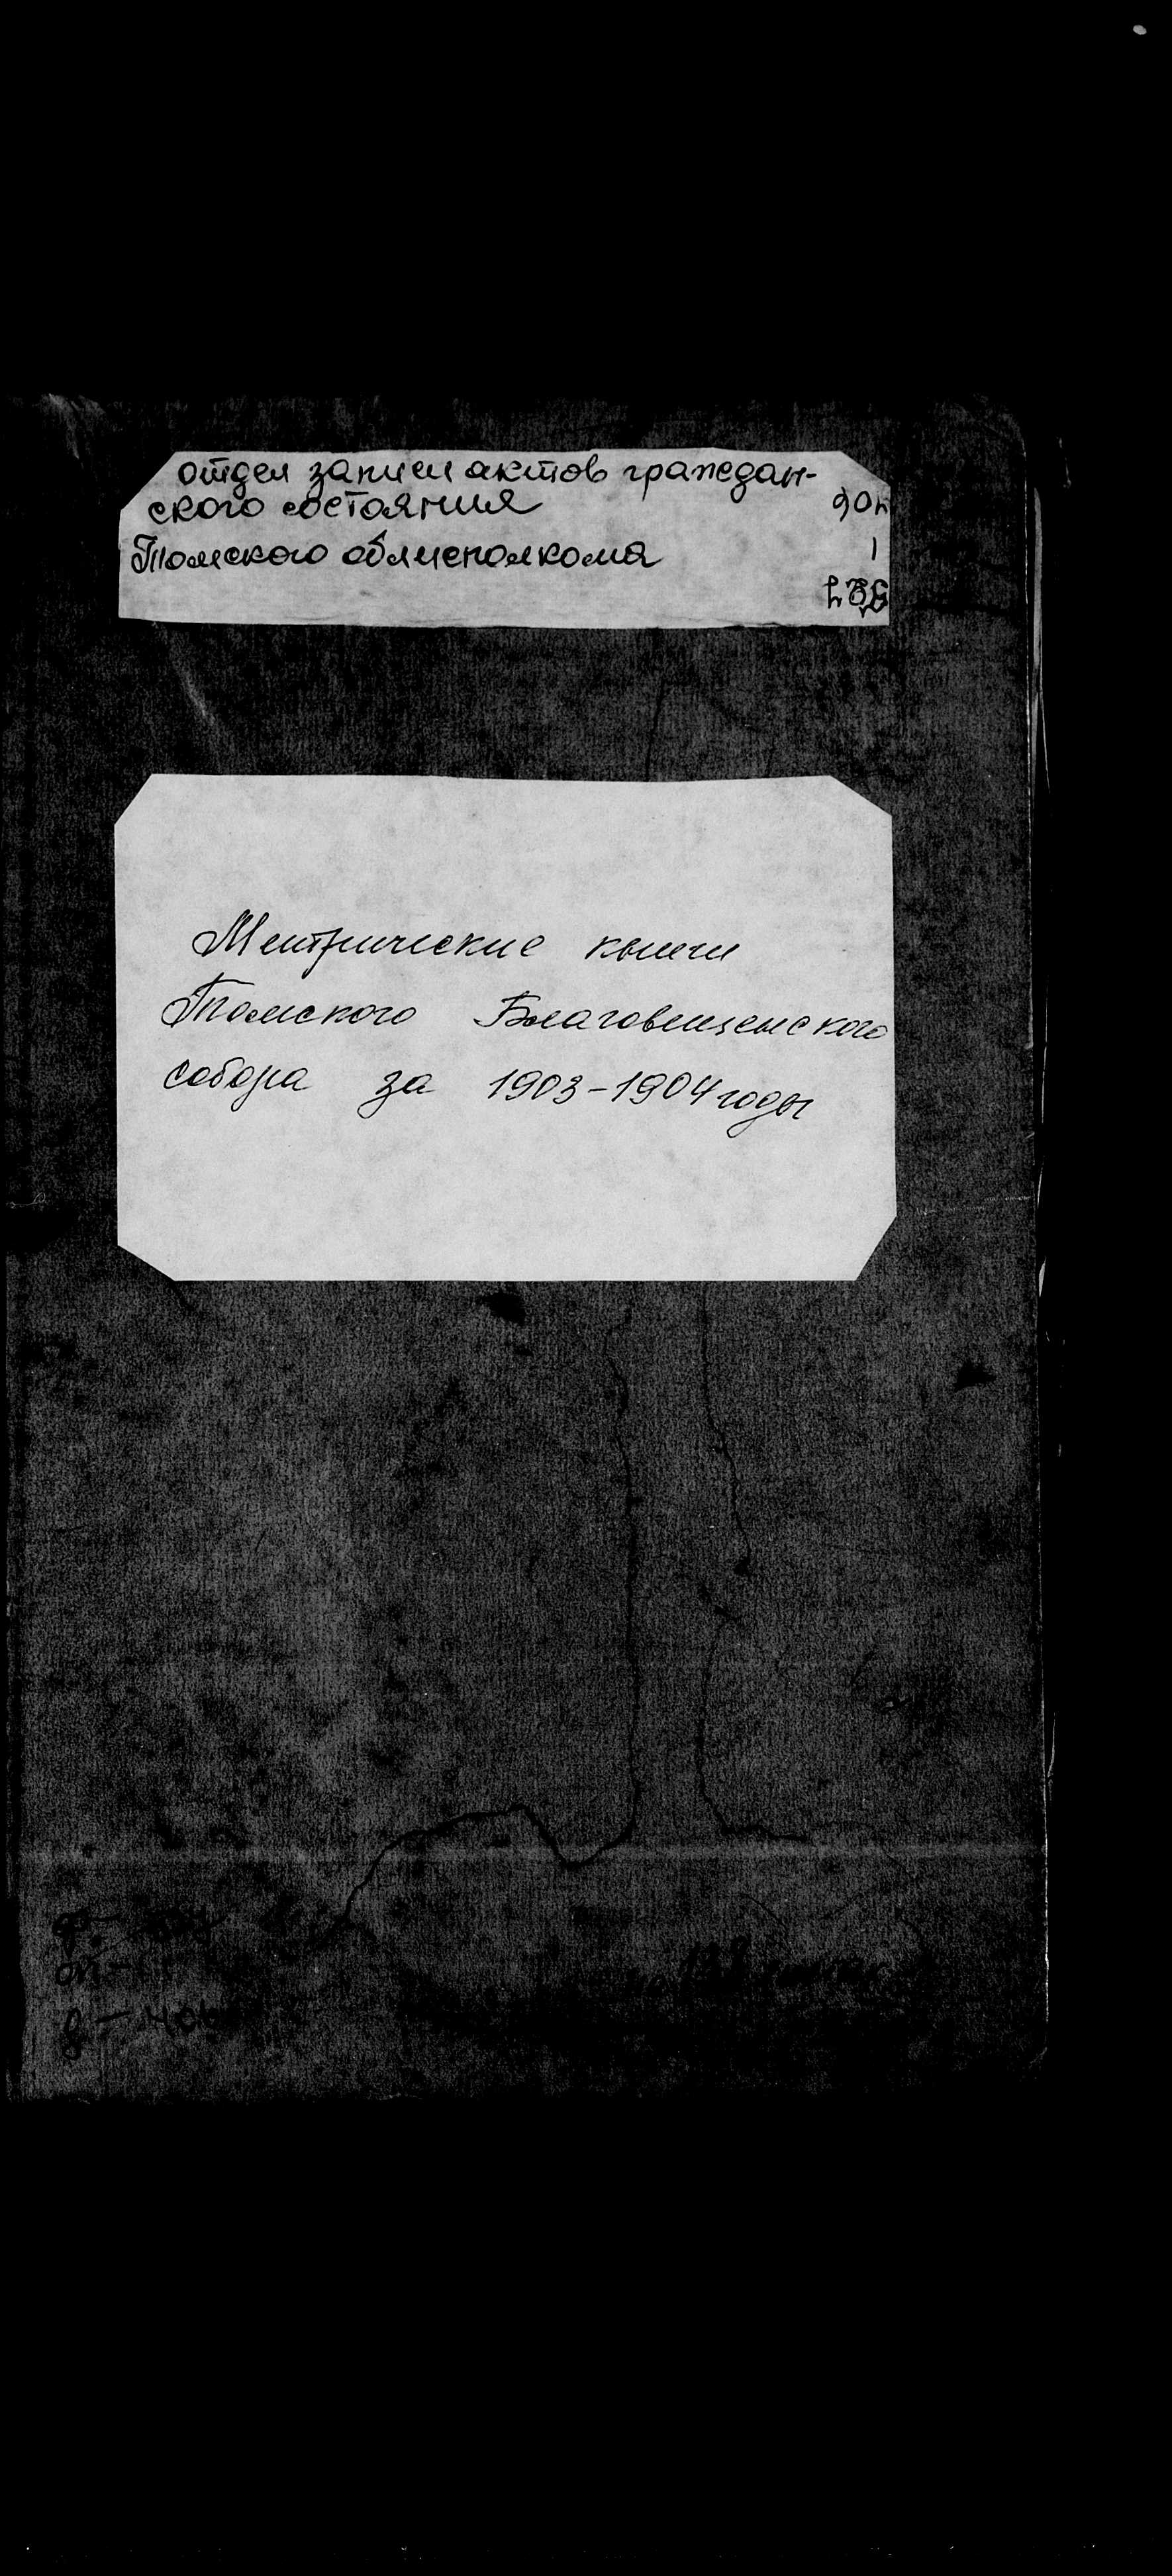 отдел записи актов граждан-
ского состояния
Томского облисполкома
1
Метрические книги
Томского Благовещенского
собора за 1903-1904 годы